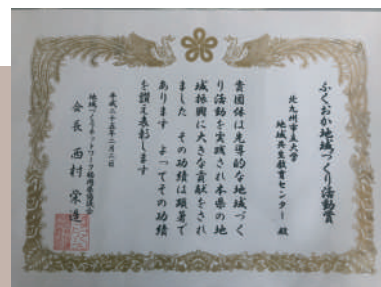 ふくおか地域づくり活動賞
北九州市立大学
地域共生教育センター 殿
貴団体は先導的な地域づく
り活動を実践され本県の地
域振興に大きな貢献をされ
ました その功績は顕著で
あります よってその功績
を讃え表彰します
平成二十五年二月二日
地域づくりネットワーク福岡県協議会
会長 西村 栄造